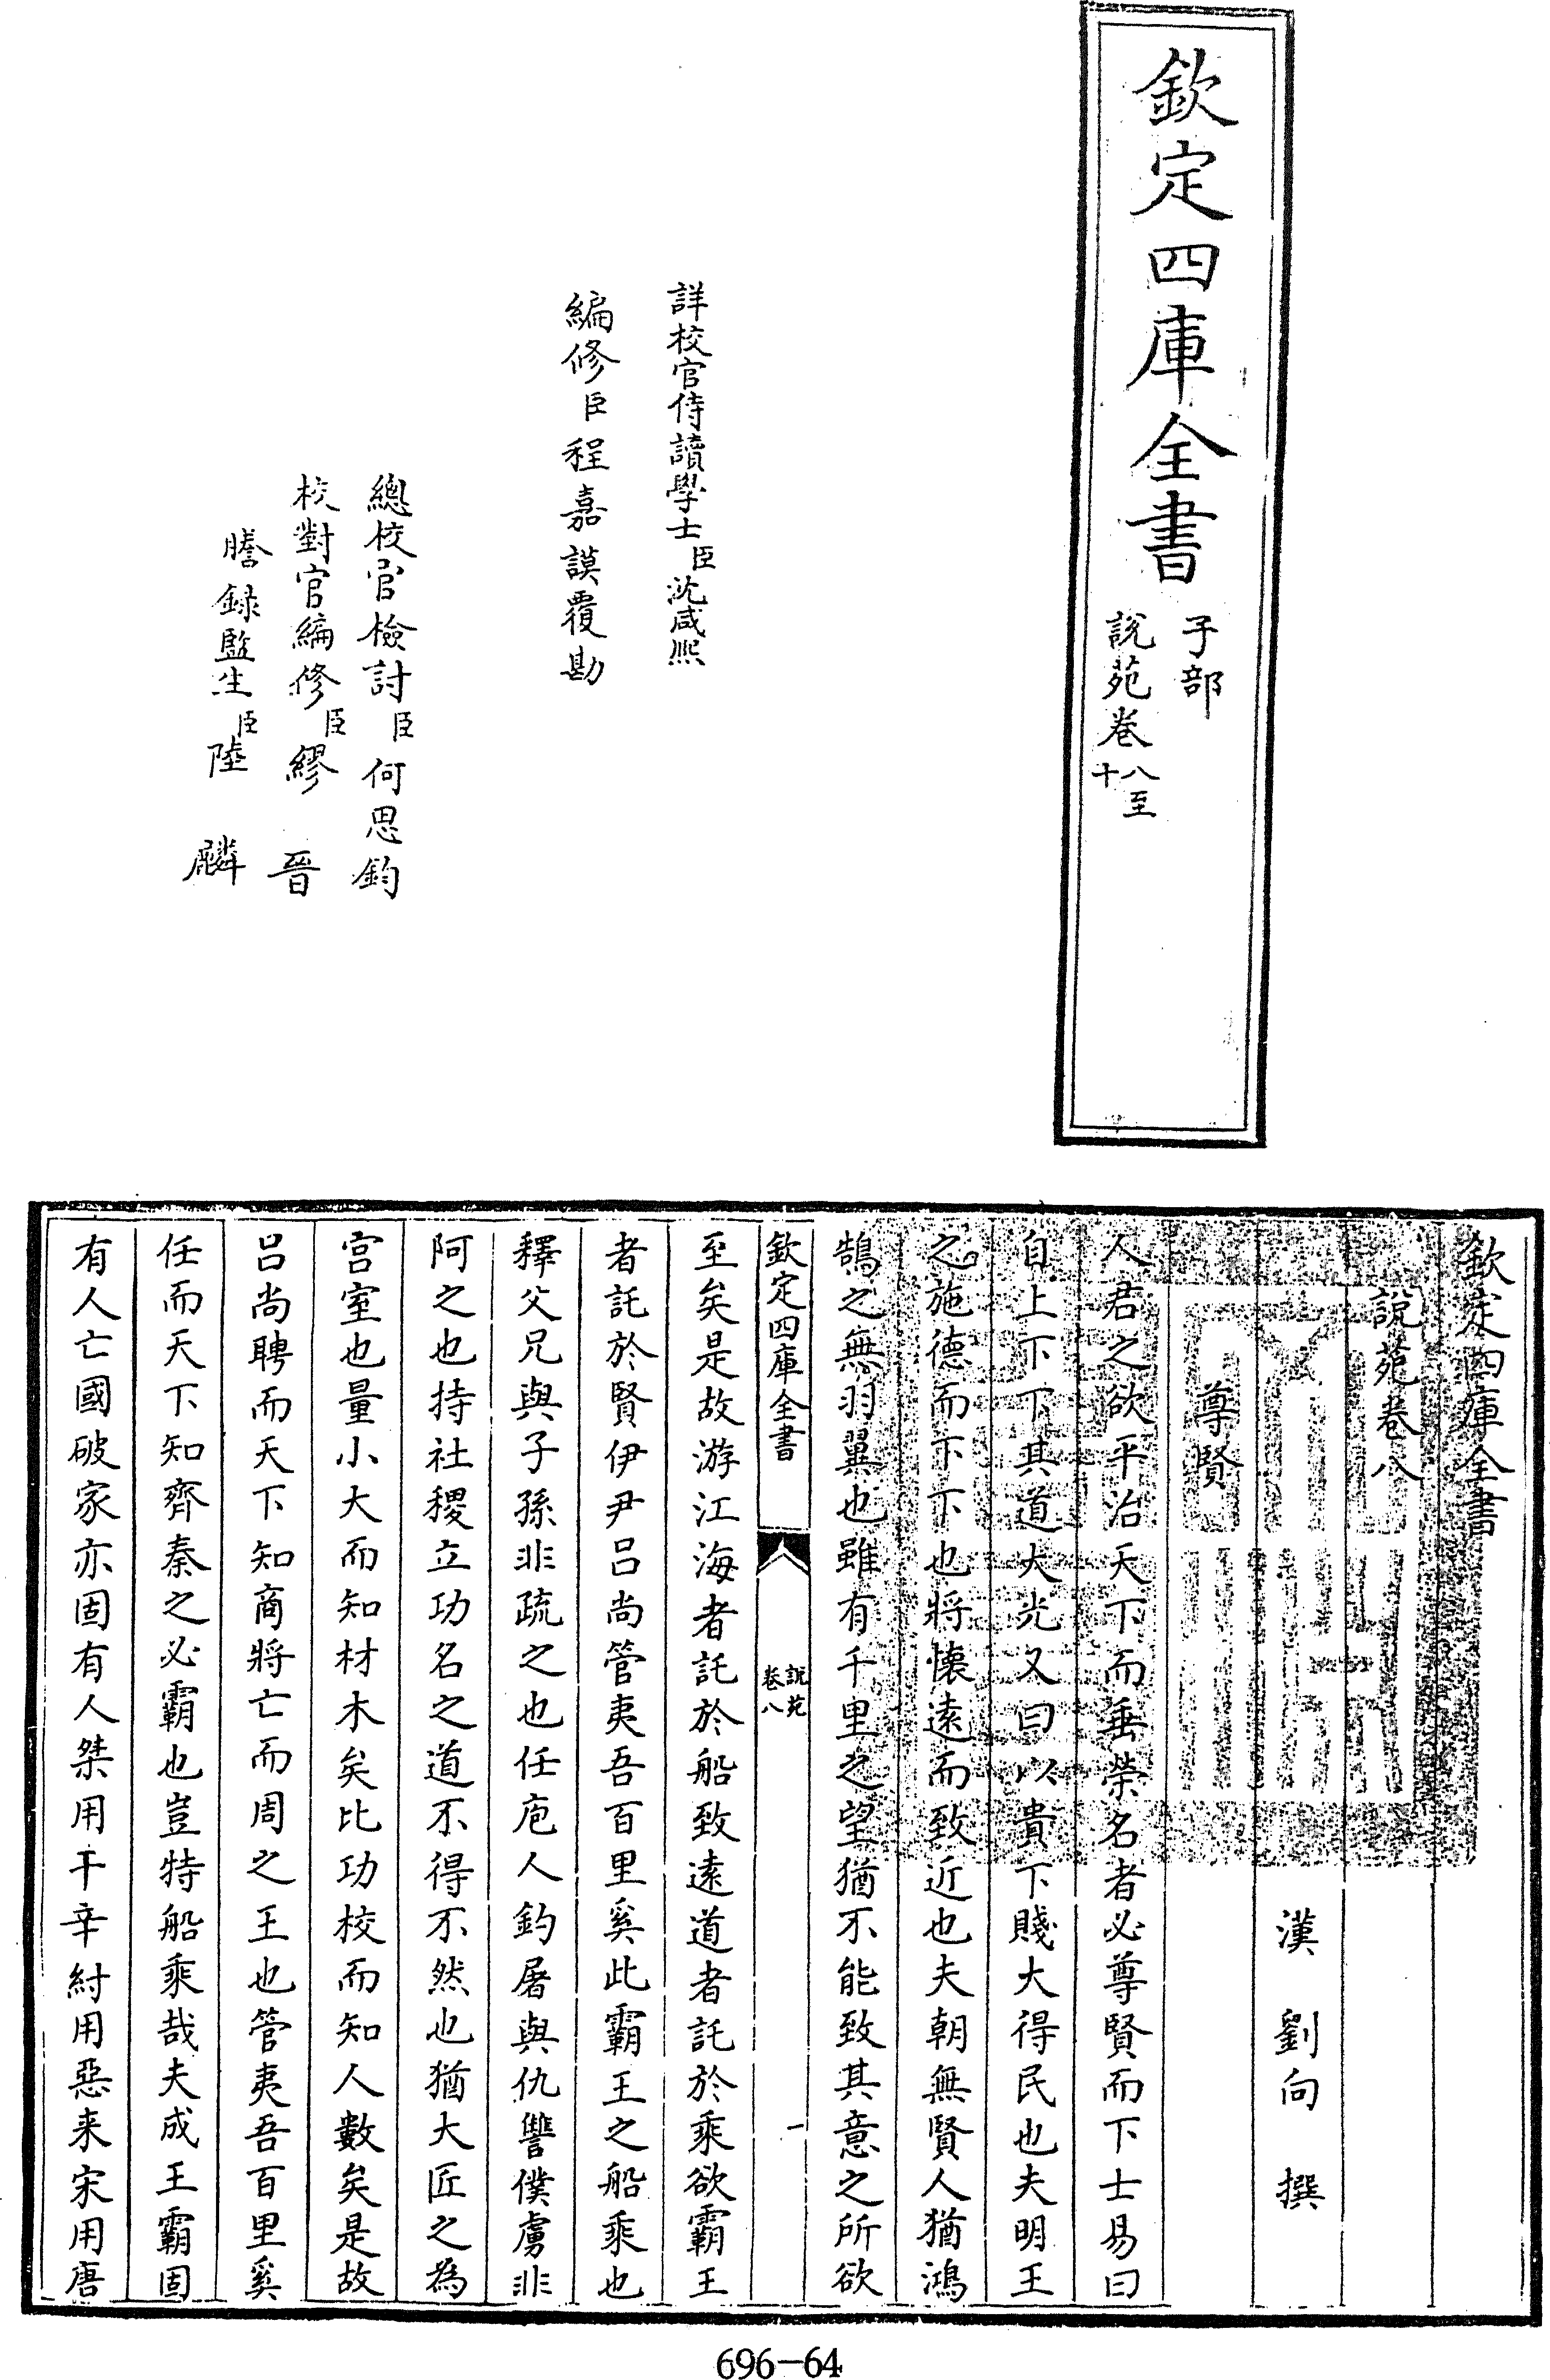 欽定四庫全書
子部
說苑卷八至
十
詳校官侍讀學士臣沈咸熙
編修臣程嘉謨覆勘
總校官檢討臣何思鈞
校對官編修臣繆晉
謄錄監生臣陸麟
欽定四庫全書
說苑卷八
漢 劉向 撰
尊賢
人君之欲平治天下而垂榮名者必尊賢而下士易曰
自上下下其道大光又曰以貴下賤大得民也夫明王
之施德而下下也將懷遠而致近也夫朝無賢人猶鴻
鵠之無羽翼也雖有千里之望猶不能致其意之所欲
欽定四庫全書
說苑
卷八
一
至矣是故游江海者託於船致遠道者託於乘欲霸王
者託於賢伊尹呂尚管夷吾百里奚此霸王之船乘也
釋父兄與子孫非疏之也任庖人釣屠與仇讐僕虜非
阿之也持社稷立功名之道不得不然也猶大匠之為
宫室也量小大而知材木矣比功校而知人數矣是故
呂尚聘而天下知商將亡而周之王也管夷吾百里奚
任而天下知齊秦之必霸也豈特船乘哉夫成王霸固
有人亡國破家亦固有人桀用干辛紂用惡来宋用唐
696-64